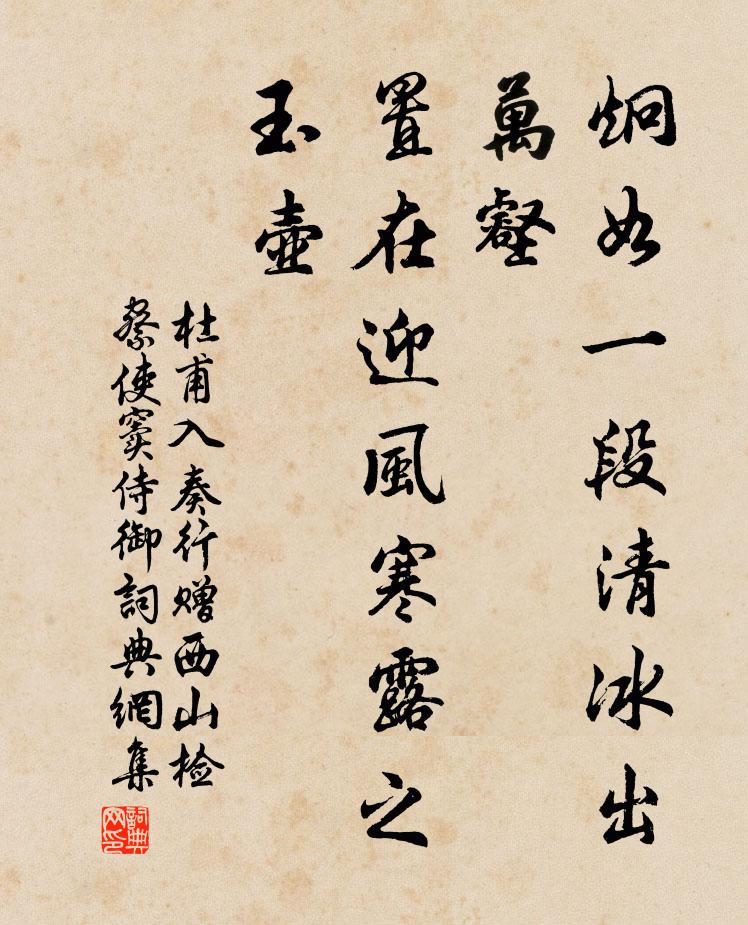 炯如一段清冰出
萬壑
置在迎風寒露之
玉壺
杜甫入奏行贈西山检
察使竇侍御詞典網集
詞典
网印